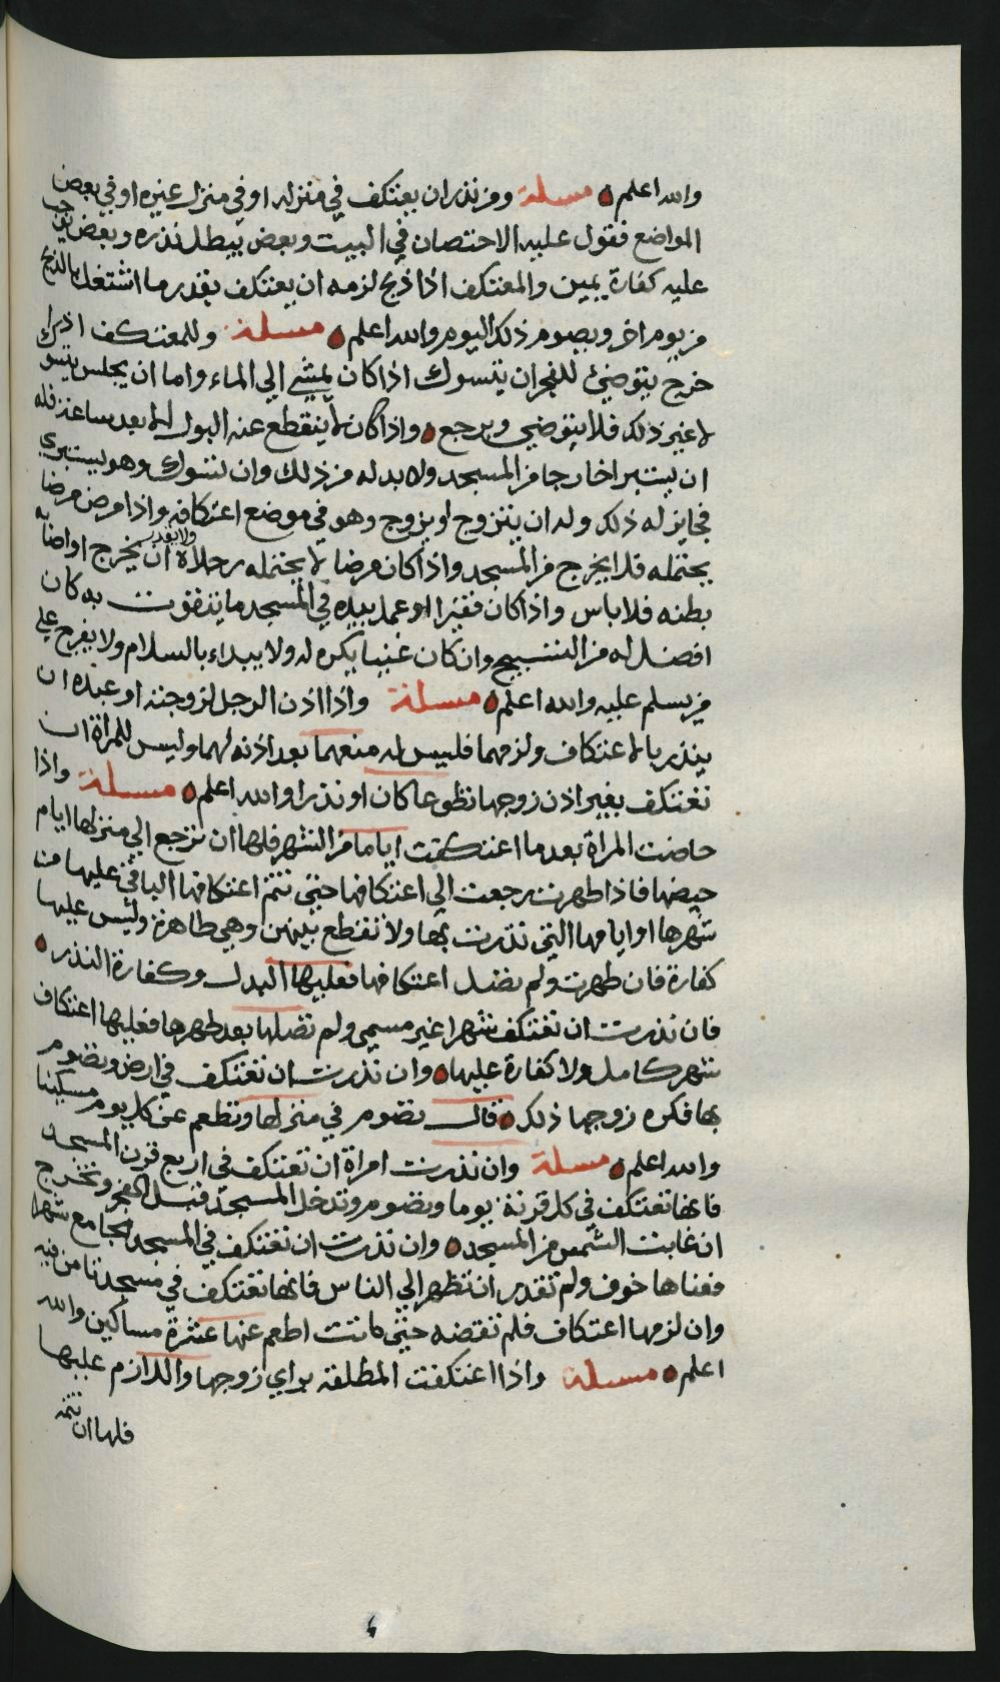 والله اعلم ه مسلة ومن نذر ان يعتكف في منزله او في منزل غيره او في بعض
المواضع فقول عليه الاحتصان في البيت وبعض يبطل نذره وبعض يوجب
عليه كفارة يمين والمعتكف اذا ذبح لزمه ان يعتكف بقدر ما اشتغل بالذبح
من يوم اخر ويصوم ذلك اليوم والله اعلم ه مسلة وللمعتكف اذا
خرج يتوضئ للفجر ان يتسوك اذا كان يمشي الي الماء واما ان يجلس يتسوك
لا غير ذلك فلا يتوضي ويرجع ه واذا كان لا ينقطع عنه البول الا بعد ساعة فله
ان يستبرا خارجا من المسجد ولا بد له من ذلك وان تسوك وهو يستبري
فجايز له ذلك وله ان يتزوج او يزوج وهو في موضع اعتكافه واذا مرض مرضا
يحتمله فلا يخرج من المسجد واذا كان مرضا لا يحتمله ولا يقدر به ان يخرج او اضا
بطنه فلا باس واذا كان فقيرا او عمل بيده في المسجد ما يتقوت به كان
افضل له من التسبيح وان كان غنيا يكره له ولا يبداء بالسلام ولا يفرج علي
من يسلم عليه والله اعلم ه مسلة واذا اذن الرجل لزوجته او عبده ان
ينذر بالاعتكاف ولزمهما فليس له منعهما بعد اذنه لهما وليس للمراة ان
تعتكف بغير اذن زوجها تطوعا كان او نذرا والله اعلم ه مسلة واذا
حاضت المراة بعد ما اعتكفت اياما من الشهر فلها ان ترجع الي منزلها ايام
حيضها فاذا طهرت رجعت الي اعتكافها حتي تتم اعتكافها الباقي عليها من
شهرها او ايامها التي نذرت بها ولا تقطع بينهن وهي طاهرة وليس عليها
كفارة فان طهرت ولم تصل اعتكافها فعليها البدل وكفارة النذر ه
فان نذرت ان تعتكف شهرا غير مسمي ولم تصلها بعد طهرها فعليها اعتكاف
شهر كامل ولا كفارة عليها ه وان نذرت ان تعتكف في ارض وتصوم
بها فكره زوجها ذلك ه قال تصوم في منزلها وتطعم عن كل يوم مسكينا
والله اعلم ه مسلة وان نذرت امراة ان تعتكف في اربع قرن المسجد
فانها تعتكف في كل قرنة يوما وتصوم وتدخل المسجد قبل الفجر وتخرج
ان غابت الشمس من المسجد ه وان نذرت ان تعتكف في المسجد الجامع شهرا
فعناها خوف ولم تقدر ان تظهر الي الناس فانها تعتكف في مسجد تامن فيه
وان لزمها اعتكاف فلم تقضه حتي ماتت اطعم عنها عشرة مساكين والله
اعلم ه مسلة واذا اعتكفت المطلقة براي زوجها واللازم عليها
فلها ان تتمه